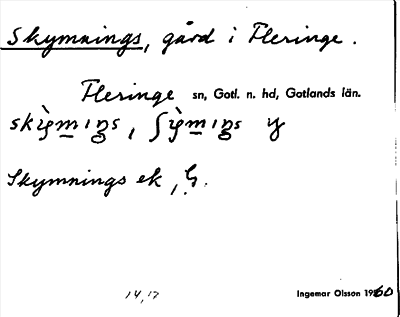 Skymnings, gård i Fleringe.
Fleringe sn, Gotl. n. hd, Gotlands län.
Skymnings ek,
14,17
Ingemar Olsson 1960